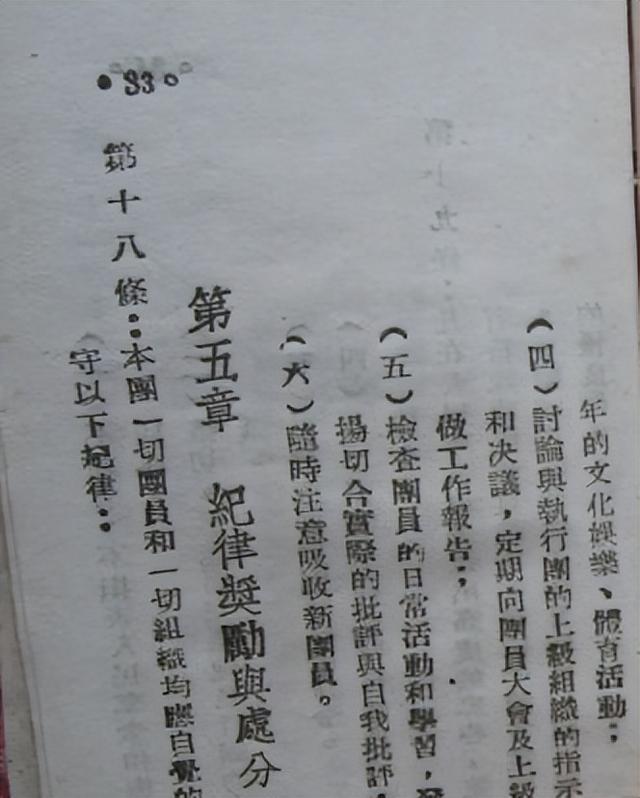 年的文化娛樂、體育活動；
（四）討論與執行團的上級組織的指示
和决議，定期向團員大會及上級
做工作報告；
（五）檢查團員的日常活動和學習，發
揚切合實際的批評與自我批評，
（六）隨時注意吸收新團員。
第五章 紀律獎勵與處分
第十八條：本團一切團員和一切組織均應自覺的
守以下紀律：
•33。